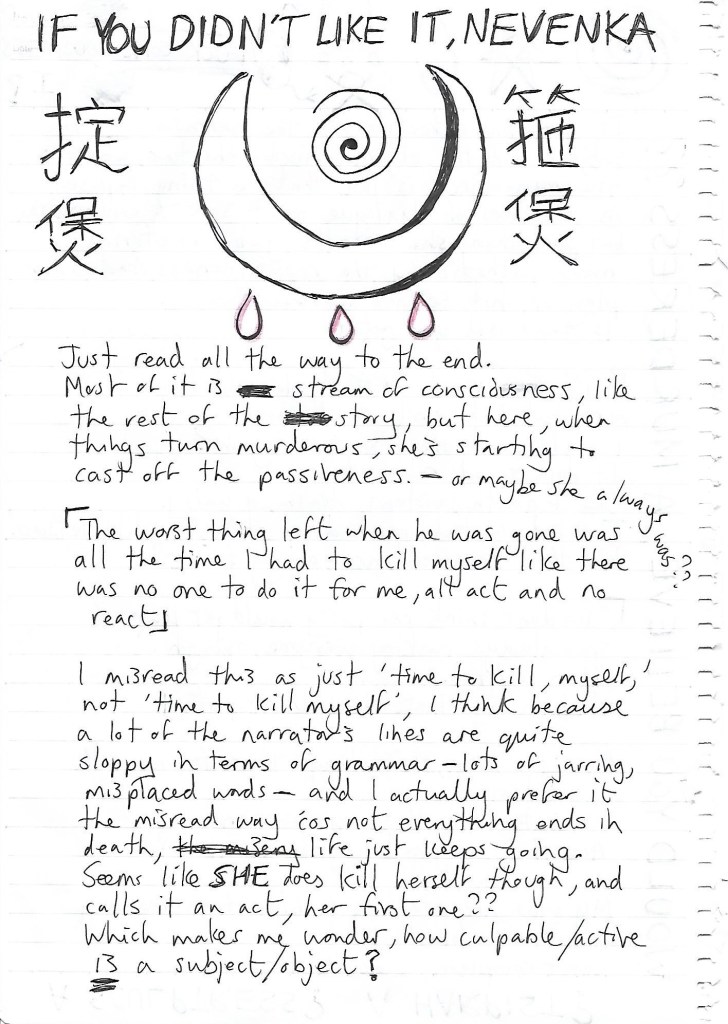 IF YOU DIDN'T LIKE IT, NEVENKA
掟
煲
箍
煲
Just read all the way to the end.
Most of it is stream of consciousness, like
the rest of the story, but here, when
things turn murderous, she's starting to
cast off the passiveness. – or maybe she always was??
「The worst thing left when he was gone was
all the time I had to kill myself like there
was no one to do it for me, all act and no
react」
I misread this as just 'time to kill, myself,'
not 'time to kill myself', I think because
a lot of the narrator's lines are quite
sloppy in terms of grammar – lots of jarring,
misplaced words – and I actually prefer it
the misread way 'cos not everything ends in
death, life just keeps going.
Seems like SHE does kill herself though, and
calls it an act, her first one??
Which makes me wonder, how culpable/active
is a subject/object?